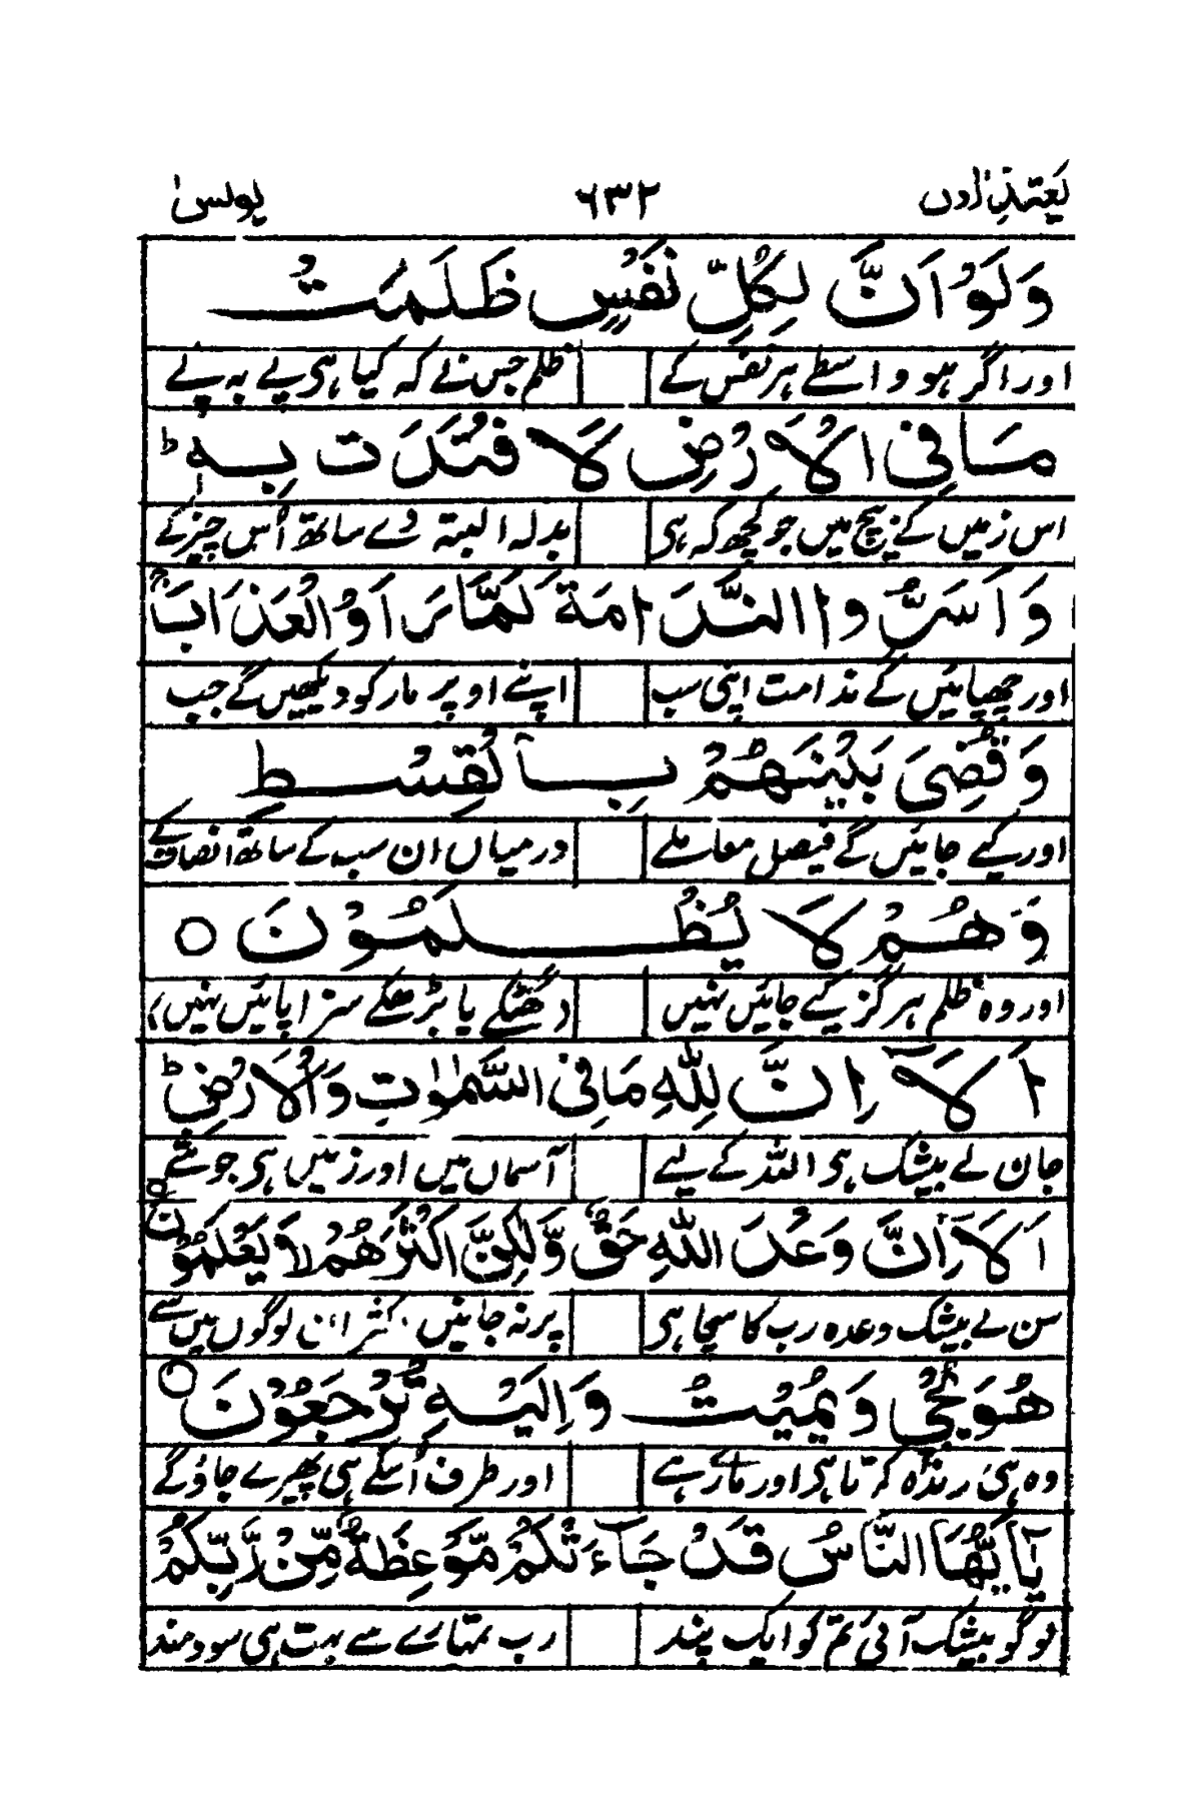 یعتذرون ۶۳۲ یونس
وَلَوْ اَنَّ لِكُلِّ نَفْسٍ ظَلَمَتْ
اور اگر ہو واسطے ہر نفس کے ظلم جس نے کہ کیا ہی پے بہ پے
مَا فِى الْاَرْضِ لَافْتَدَتْ بِهٖ ؕ
اس زمیں کے بیچ میں جو کچھ کہ ہی بدلہ البتہ دے ساتھ اُس چیز کے
وَاَسَرُّوا النَّدَامَةَ لَمَّا رَاَوُ الْعَذَابَ ۚ
اور چھپائیں گے ندامت اپنی سب اپنے اوپر مار کو دیکھیں گے جب
وَقُضِىَ بَيْنَهُمْ بِالْقِسْطِ
اور کیے جائیں گے فیصل معاملے درمیاں ان سب کے ساتھ انصاف کے
وَهُمْ لَا يُظْلَمُوْنَ ○
اور وہ ظلم ہرگز کیے جائیں نہیں (گھٹکے یا بڑھکے سزا پائیں نہیں)
اَلَآ اِنَّ لِلّٰهِ مَا فِى السَّمٰوٰتِ وَالْاَرْضِ ؕ
جان لے بیشک ہی اللہ کے لیے آسماں میں اور زمیں ہی جو شے
اَلَآ اِنَّ وَعْدَ اللّٰهِ حَقٌّ وَّلٰكِنَّ اَكْثَرَهُمْ لَا يَعْلَمُوْنَ ○
سن لے بیشک وعدہ رب کا سچا ہی پر نہ جانیں اکثر ان لوگوں میں سے
هُوَ يُحْىٖ وَيُمِيْتُ وَاِلَيْهِ تُرْجَعُوْنَ ○
وہ ہی زندہ کرتا ہی اور مارے ہے اور طرف اُسکے ہی پھیرے جاؤ گے
يٰٓاَيُّهَا النَّاسُ قَدْ جَآءَتْكُمْ مَّوْعِظَةٌ مِّنْ رَّبِّكُمْ
لوگو بیشک آئی تم کو ایک پند رب تمہارے سے بہت ہی سودمند